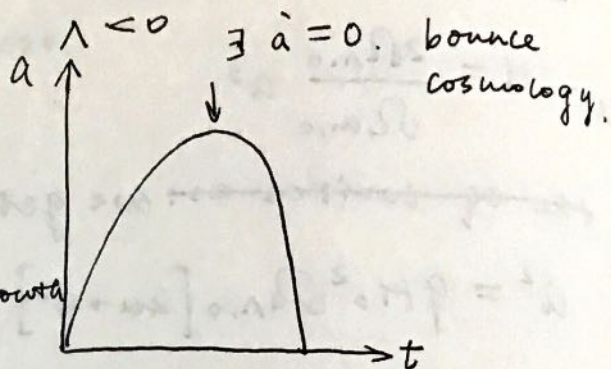 Λ < 0
∃ ȧ = 0. bounce
cosmology.
a
t